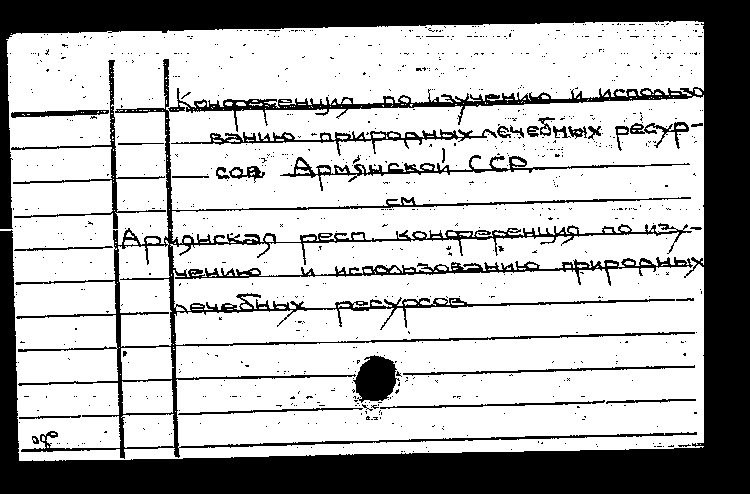 Конференция по изучению и использо
ванию природных лечебных ресур-
сов Армянской ССР.
см
Армянская респ. конференция по изу-
чению и использованию природных
лечебных ресурсов